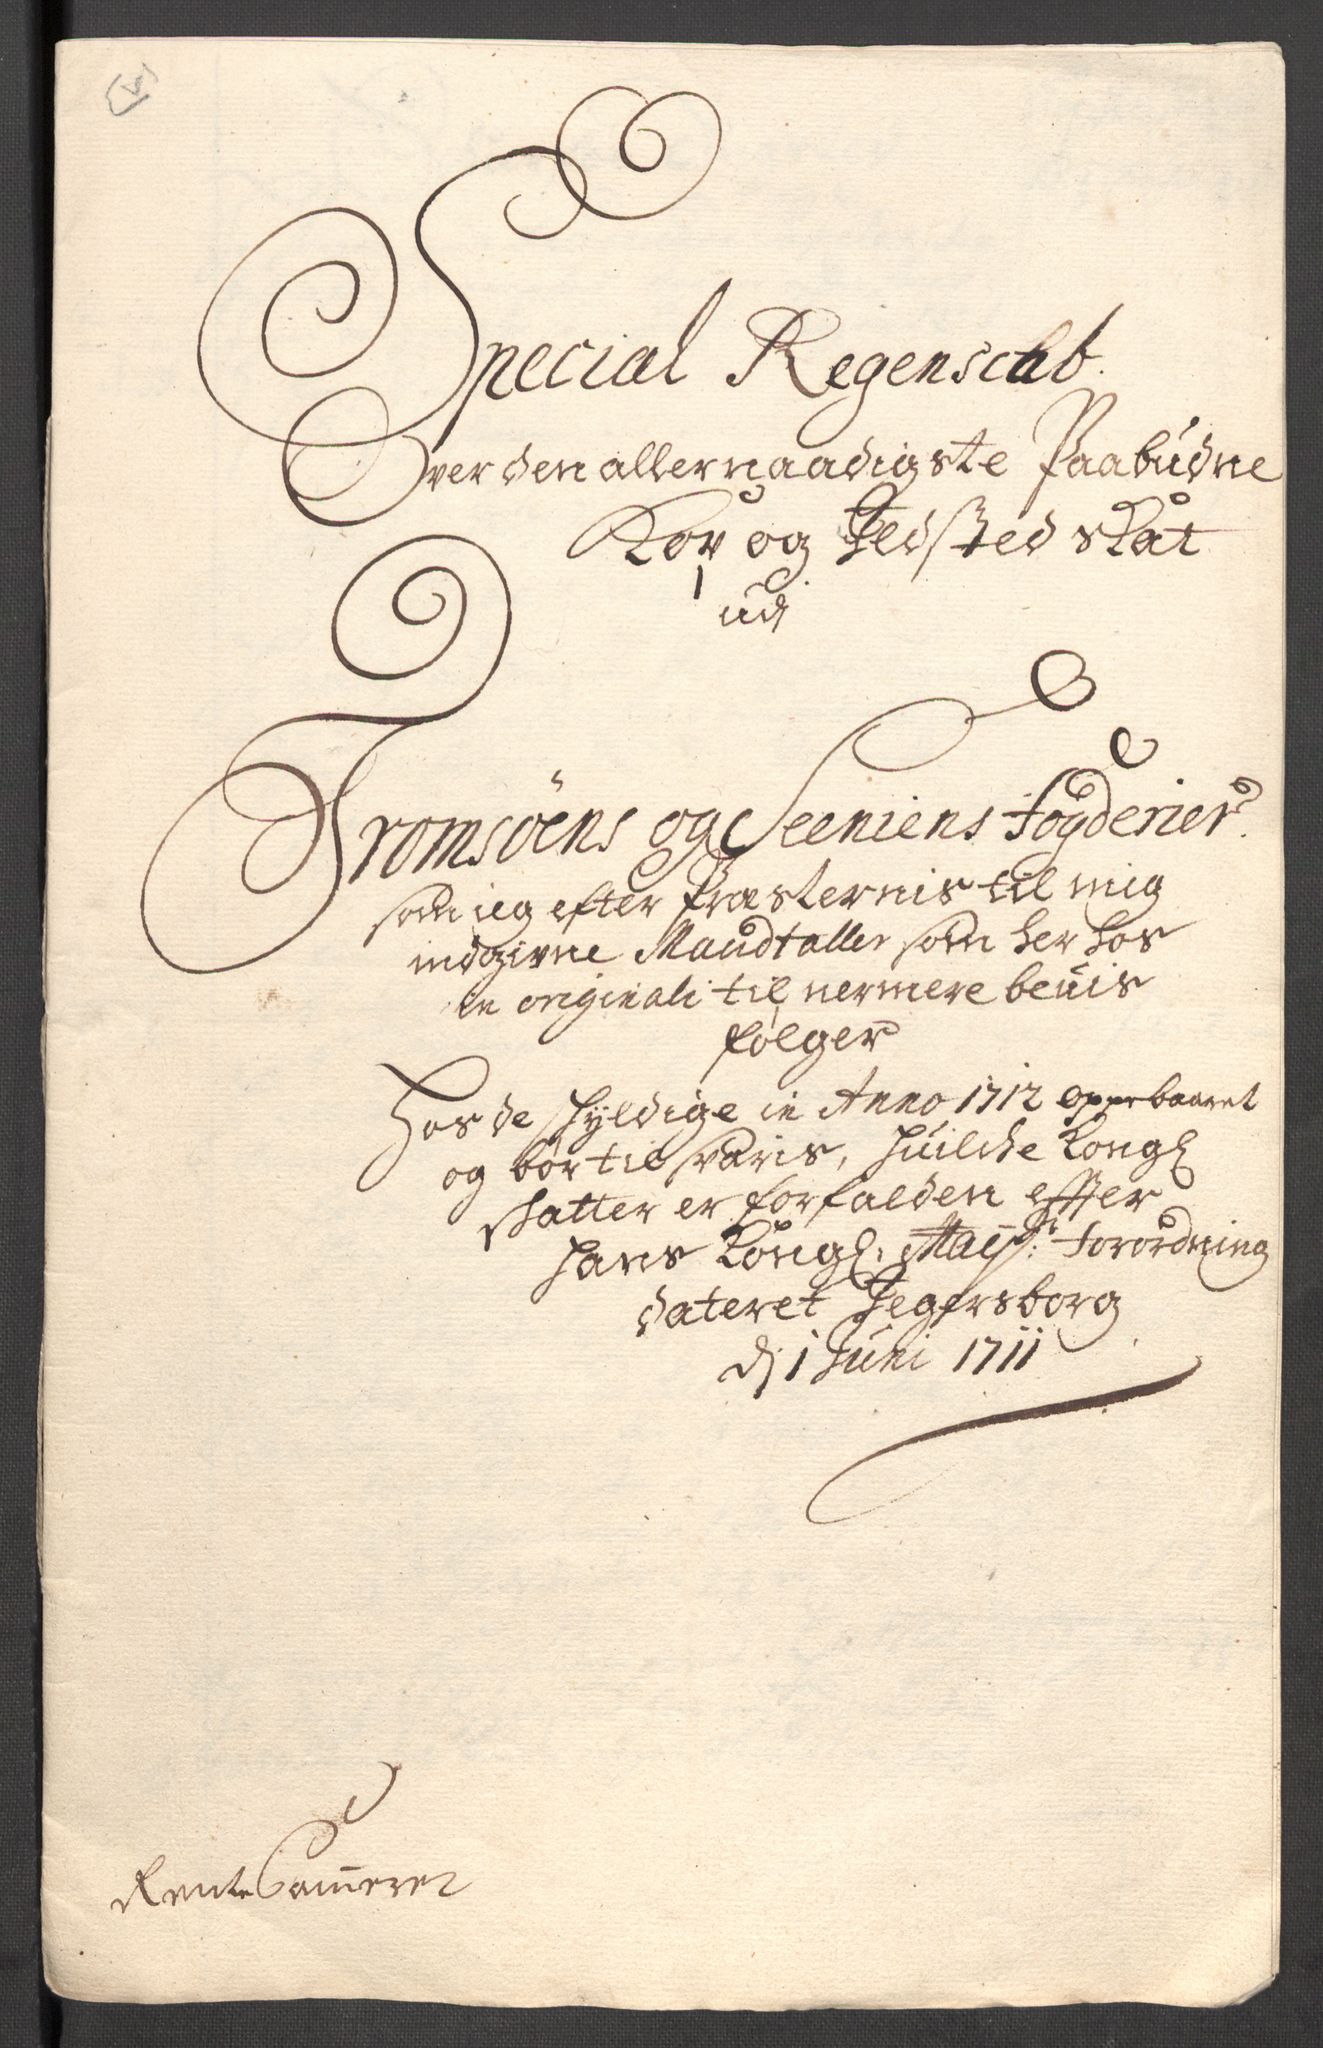 Special Regenschab
Over den allernaadigste Paabudne
Kop og Ildsted skat
udj
Tromsöens og Seeniens Fogderier
som ieg efter Præsternis til mig
indgivne Mandtaller som her hos
in originali til nermere beviis
følger
Hos de schyldige in Anno 1712 oppebaaret
og bør til svaris, huilche Kongl
schatter er forfalden effter
Hans Kongl. Mayts: Forordning
dateret Jegersborg
dj 1 Juni 1711
Rente Cammeret